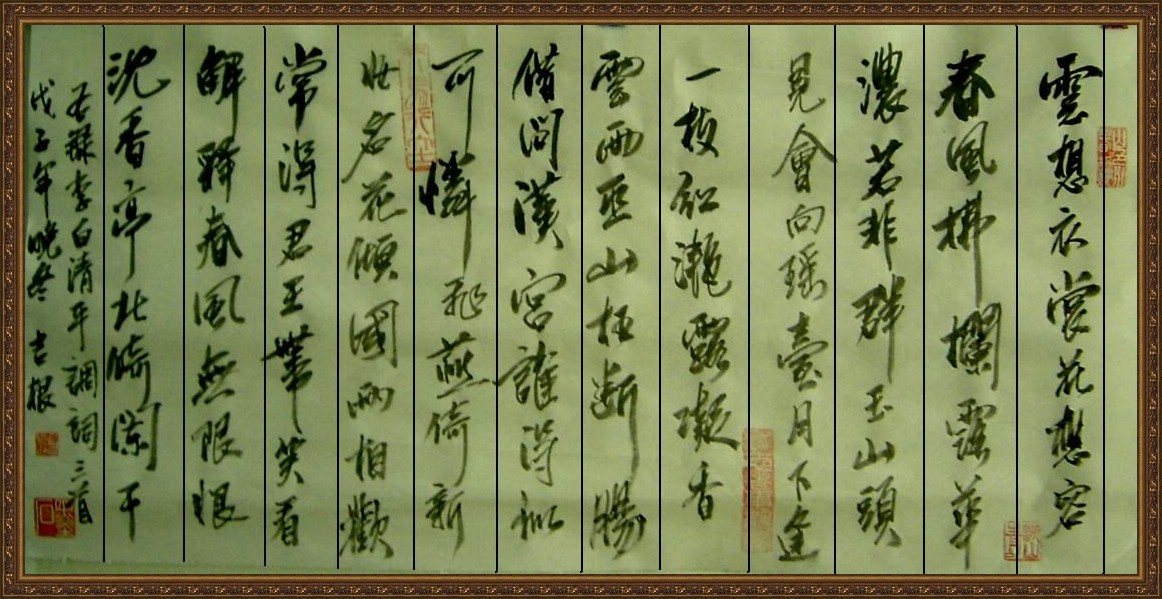 雲想衣裳花想容
春風拂欄露華
濃若非群玉山頭
見會向瑤臺月下逢
一枝紅灔露凝香
雲雨巫山枉断腸
借問漢宮誰得似
可憐飛燕倚新
妝名花傾國兩相歡
常得君王帶笑看
解釋春風無限恨
沈香亭北倚闌干
右録李白清平調詞三首
戊子年晚冬 吉根